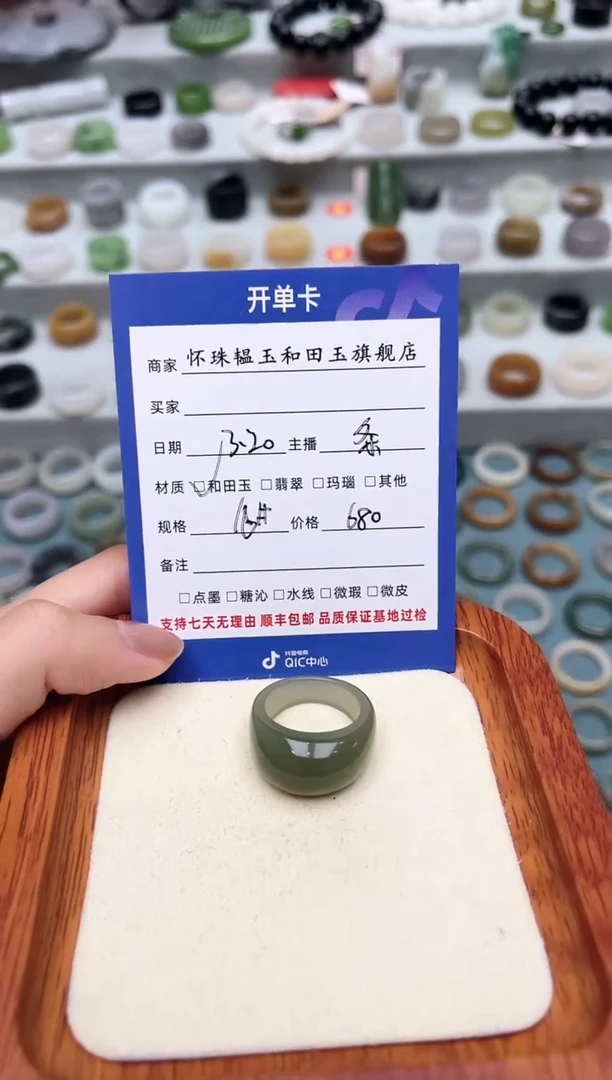 开单卡
商家 怀珠韫玉和田玉旗舰店
买家
日期 3.20 主播
材质 ☑和田玉 □翡翠 □玛瑙 □其他
规格 价格 680
备注
□点墨 □糖沁 □水线 □微瑕 □微皮
支持七天无理由 顺丰包邮 品质保证基地过检
抖音电商
QIC中心